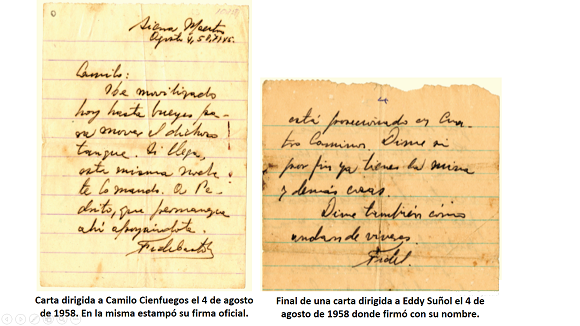 Sierra Maestra
Agosto 4, 58,
Camilo:
He movilizado
hoy hasta bueyes pa-
ra mover el dichoso
tanque. Si llega,
esta misma noche
te lo mando. A Pe-
drito, que permanezca
ahí apoyándote.
Fidel Castro
está posesionado en Cua-
tro Caminos. Dime si
por fin ya tienes la mina
y demás cosas.
Dime también cómo
andan de víveres.
Fidel.
Carta dirigida a Camilo Cienfuegos el 4 de agosto
de 1958. En la misma estampó su firma oficial.
Final de una carta dirigida a Eddy Suñol el 4 de
agosto de 1958 donde firmó con su nombre.